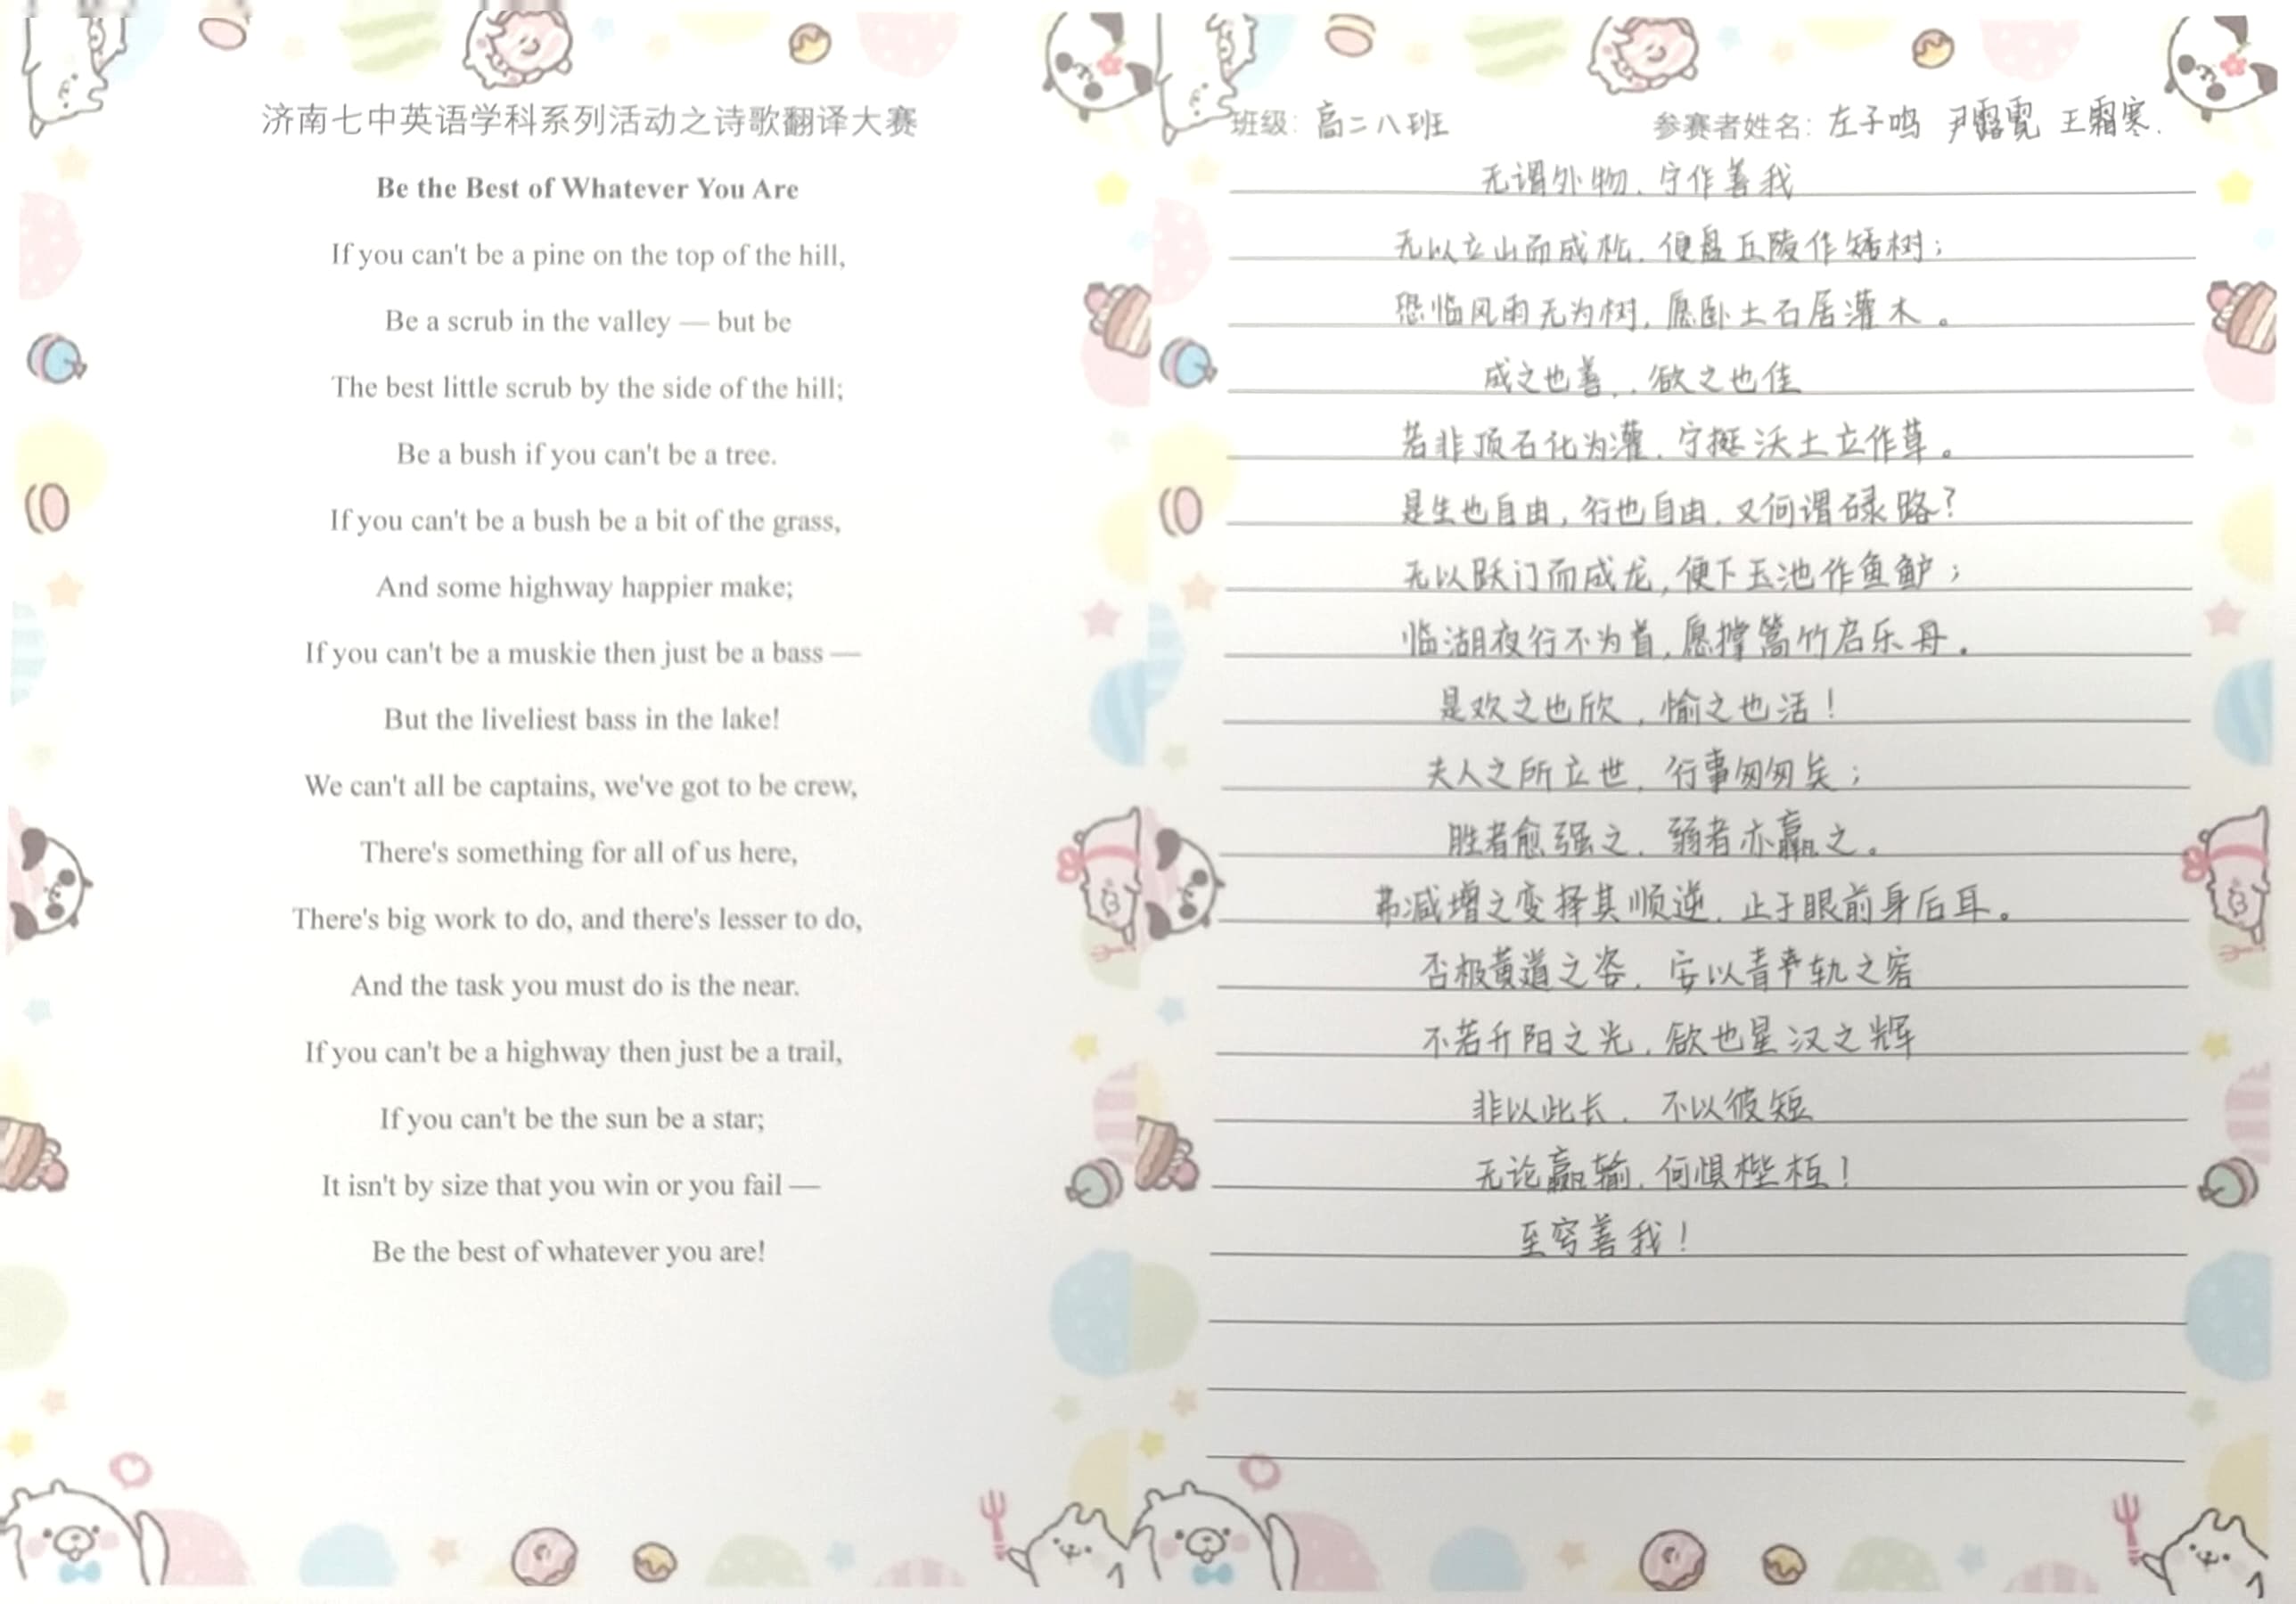 济南七中英语学科系列活动之诗歌翻译大赛
Be the Best of Whatever You Are
If you can't be a pine on the top of the hill,
Be a scrub in the valley — but be
The best little scrub by the side of the hill;
Be a bush if you can't be a tree.
If you can't be a bush be a bit of the grass,
And some highway happier make;
If you can't be a muskie then just be a bass —
But the liveliest bass in the lake!
We can't all be captains, we've got to be crew,
There's something for all of us here,
There's big work to do, and there's lesser to do,
And the task you must do is the near.
If you can't be a highway then just be a trail,
If you can't be the sun be a star;
It isn't by size that you win or you fail —
Be the best of whatever you are!
班级: 高二八班
参赛者姓名: 左子鸣 尹露霓 王霜寒.
无谓外物, 宁作善我
无以立山而成松, 便盘丘陵作矮树;
恐临风雨无为树, 愿卧土石居灌木。
成之也善, 欲之也佳
若非顶石化为灌, 宁挺沃土立作草。
是生也自由, 行也自由, 又何谓碌路?
无以跃门而成龙, 便下玉池作鱼鲈;
临湖夜行不为首, 愿撑篙竹启乐舟。
是欢之也欣, 愉之也活!
夫人之所立世, 行事匆匆矣;
胜者愈强之, 弱者亦赢之。
弗减增之变择其顺逆, 止于眼前身后耳。
否极黄道之姿, 安以青轨之
不若升阳之光, 欲也星汉之辉
非以此长, 不以彼短
无论赢输, 何惧桎梏!
至穷善我!